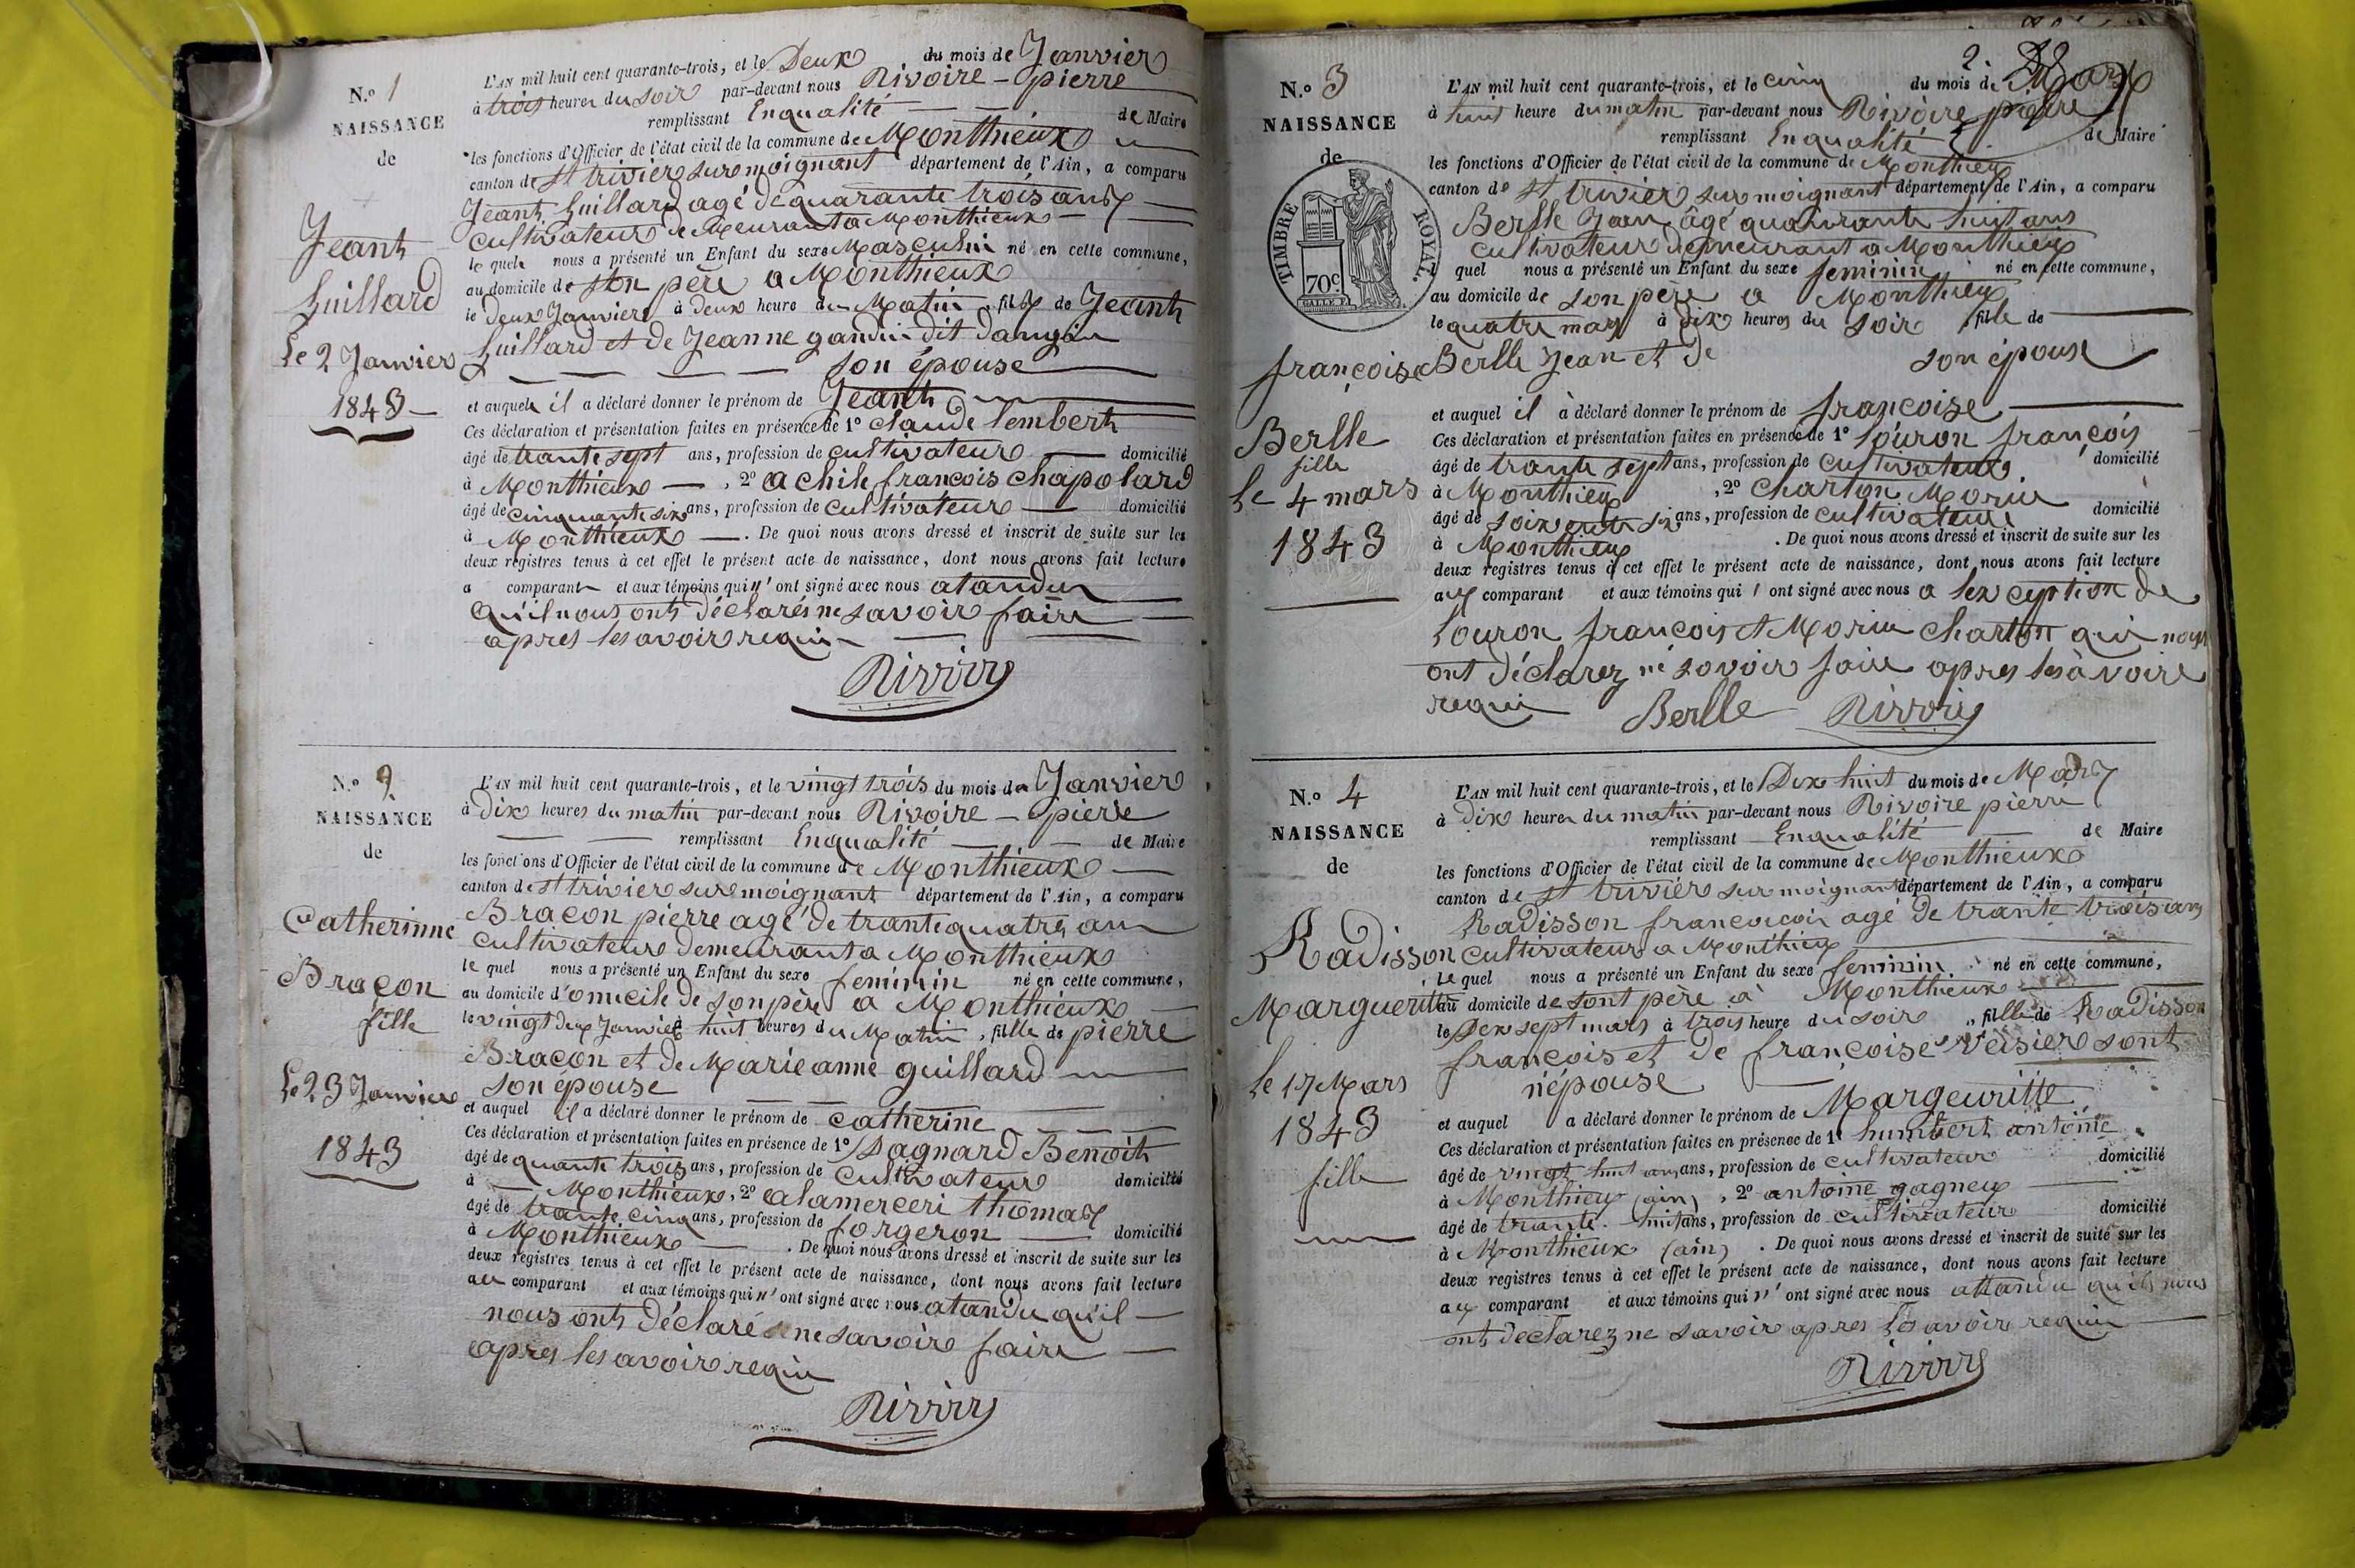 N.° 1
NAISSANCE
de
Jeant
Guillard
Le 2 Janvier
1843
L'AN mil huit cent quarante-trois, et le Deux du mois de Janvier
à trois heures du soir par-devant nous Rivoire - pierre
remplissant Enqualité de Maire
les fonctions d'Officier de l'état civil de la commune de Monthieux
canton de St trivier sur moignant département de l'Ain, a comparu
Jeant Guillard agé de quarante trois ans
cultivateur de Meurant a Monthieux
le quel nous a présenté un Enfant du sexe Masculin né en cette commune,
au domicile de son père a Monthieux
le deux Janvier à deux heure du Matin, fils de Jeant
Guillard et de Jeanne gandin dit dangin
son épouse
et auquel il a déclaré donner le prénom de Jeant
Ces déclaration et présentation faites en présence de 1° claude lembert
âgé de trante sept ans, profession de cultivateur domicilié
à Monthieux, 2° achile françois chapolard
âgé de cinquante six ans, profession de cultivateur domicilié
à Monthieux. De quoi nous avons dressé et inscrit de suite sur les
deux registres tenus à cet effet le présent acte de naissance, dont nous avons fait lecture
a comparant et aux témoins qui n'ont signé avec nous atandu
qu'il nous ont déclarés ne savoir faire
apres les avoir requi
Rivoire
N.° 2
NAISSANCE
de
Catherinne
Bracon
fille
Le 23 Janvier
1843
L'AN mil huit cent quarante-trois, et le vingt trois du mois de Janvier
à Dix heures du matin par-devant nous Rivoire - pierre
remplissant Enqualité de Maire
les fonctions d'Officier de l'état civil de la commune de Monthieux
canton de St trivier sur moignant département de l'Ain, a comparu
Bracon pierre agé de trante quatre an
cultivateur demeurant a Monthieux
le quel nous a présenté un Enfant du sexe feminin né en cette commune,
au domicile d'omicile de son père a Monthieux
le vingt deux Janvier à huit heures du Matin, fille de pierre
Bracon et de Marie anne guillard
son epouse
et auquel il a déclaré donner le prénom de catherine
Ces déclaration et présentation faites en présence de 1° Pagnard Benoit
âgé de quante trois ans, profession de cultivateur domicilié
à Monthieux, 2° alamerceri thomas
âgé de trante cinq ans, profession de forgeron domicilié
à Monthieux. De quoi nous avons dressé et inscrit de suite sur les
deux registres tenus à cet effet le présent acte de naissance, dont nous avons fait lecture
au comparant et aux témoins qui n'ont signé avec nous atandu qu'il
nous ont déclaré ne savoire faire
apres les avoir requi
Rivoire
2
N.° 3
NAISSANCE
de
TIMBRE ROYAL.
70c
françoise
Berlle
fille
Le 4 mars
1843
L'AN mil huit cent quarante-trois, et le cinq du mois de Mars
à huit heure du matin par-devant nous Rivoire pierre
remplissant Enqualité de Maire
les fonctions d'Officier de l'état civil de la commune de Monthieux
canton de St trivier sur moignant département de l'Ain, a comparu
Berlle Jean âgé quarante huit ans
cultivateur demeurant a Monthieux
quel nous a présenté un Enfant du sexe feminin né en cette commune,
au domicile de son père a Monthieux
le quatre mars à dix heures du soir, fille de
Berlle Jean et de son épouse
et auquel il à déclaré donner le prénom de françoise
Ces déclaration et présentation faites en présence de 1° Louron françois
âgé de trante sept ans, profession de cultivateur domicilié
à Monthieux, 2° charton Morin
âgé de soixante six ans, profession de cultivateur domicilié
à Monthieux. De quoi nous avons dressé et inscrit de suite sur les
deux registres tenus à cet effet le présent acte de naissance, dont nous avons fait lecture
aux comparant et aux témoins qui ont signé avec nous a lexception de
Louron françois et Morin charton qui nous
ont déclarez né savoir faire apres les avoire
requi
Berlle Rivoire
N.° 4
NAISSANCE
de
Radisson
Marguerite
le 17 Mars
1843
fille
L'AN mil huit cent quarante-trois, et le Dix huit du mois de Mars
à Dix heures du matin par-devant nous Rivoire pierre
remplissant Enqualité de Maire
les fonctions d'Officier de l'état civil de la commune de Monthieux
canton de St trivier sur moignant département de l'Ain, a comparu
Radisson agé de trante trois ans
cultivateur a Monthieux
Le quel nous a présenté un Enfant du sexe feminin né en cette commune,
au domicile de sont père à Monthieux
le Dix sept mars à trois heure du soir, fille de Radisson
françois et de françoise Veisier sont
népouse
et auquel a déclaré donner le prénom de Margeuritte
Ces déclaration et présentation faites en présence de 1° humbert antoine
âgé de vingt huit ans ans, profession de cultivateur domicilié
à Monthieux (ain), 2° antoine gagneux
âgé de trante huit ans, profession de cultivateur domicilié
à Monthieux (ain). De quoi nous avons dressé et inscrit de suite sur les
deux registres tenus à cet effet le présent acte de naissance, dont nous avons fait lecture
aux comparant et aux témoins qui n'ont signé avec nous attandu qu'ils nous
ont declarez ne savoir apres les avoir requi
Rivoire